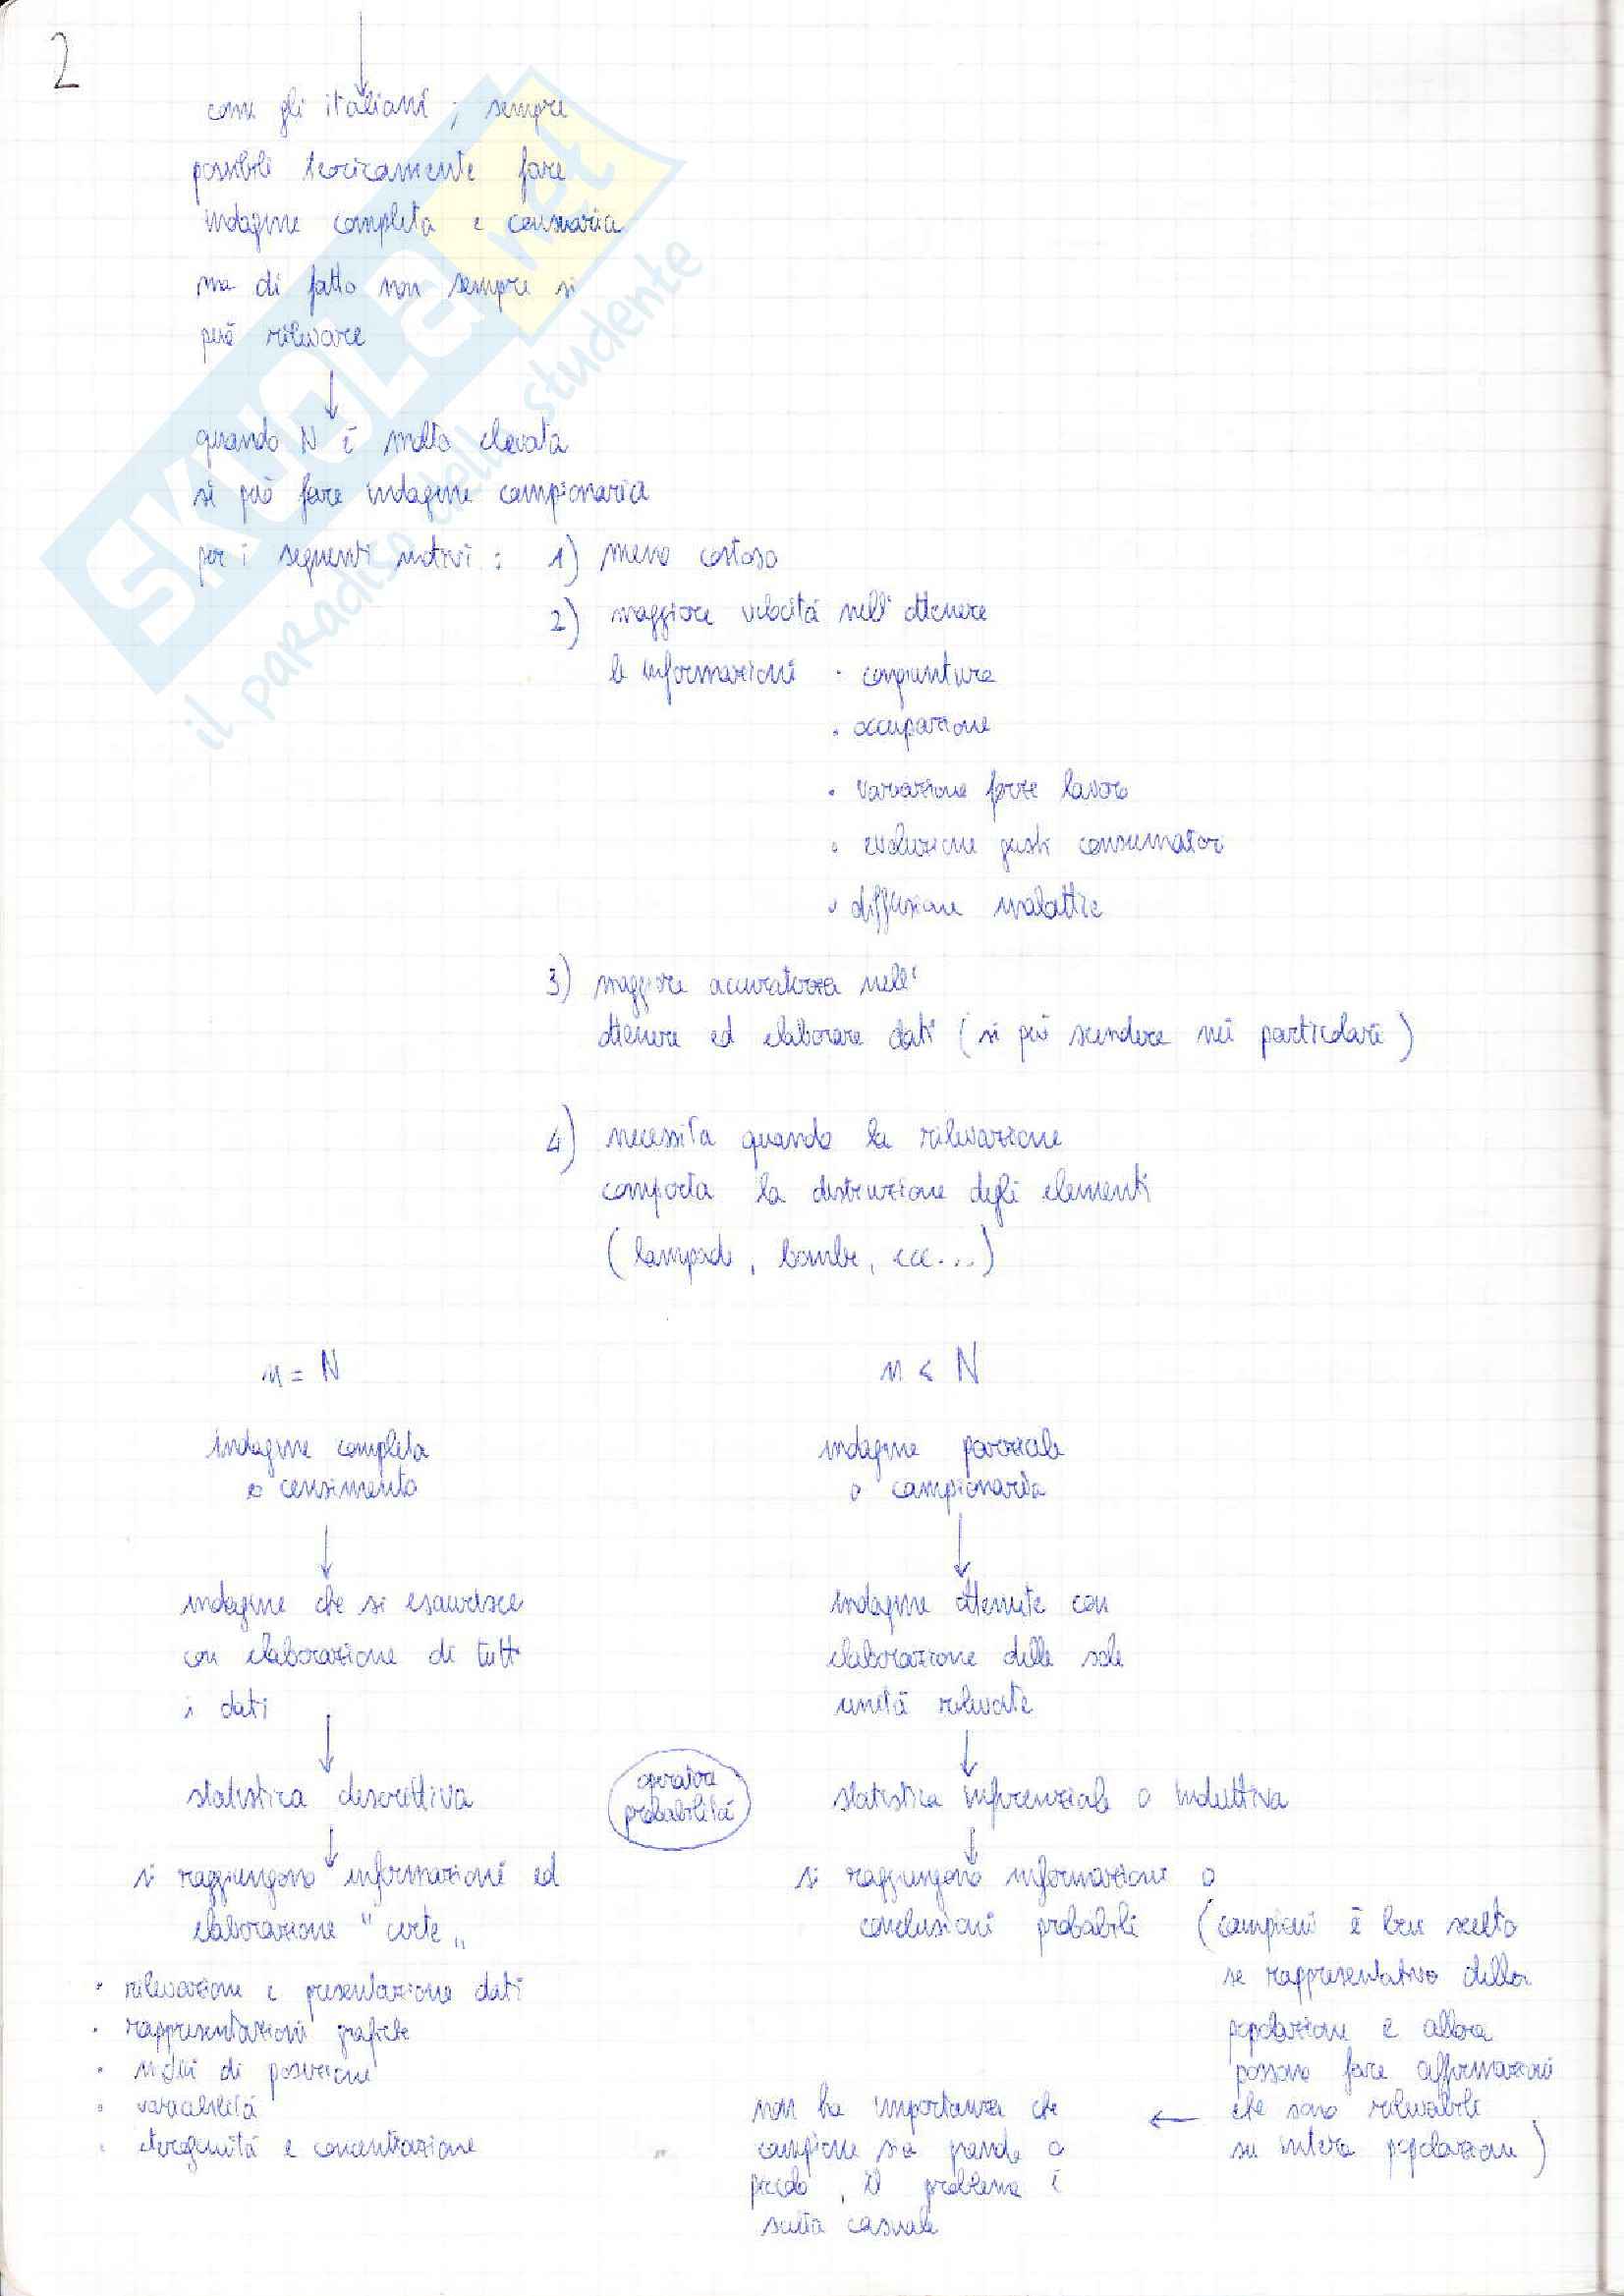 2
come gli italiani ; sempre
possibili teoricamente fare
indagine completa e censuaria
ma di fatto non sempre si
può rilevare
quando N è molto elevata
si può fare indagine campionaria
per i seguenti motivi : 1) meno costoso
2) maggiore velocità nell' ottenere
le informazioni · congiuntura
· occupazione
· variazione forze lavoro
· evoluzione gusti consumatori
· diffusione malattie
3) maggiore accuratezza nell'
ottenere ed elaborare dati (si può scendere nei particolari)
4) necessità quando la rilevazione
comporta la distruzione degli elementi
(lampade, bombe, ecc...)
n = N
indagine completa
o censimento
indagine che si esaurisce
con elaborazione di tutti
i dati
statistica descrittiva
si raggiungono informazioni ed
elaborazione "certe"
· rilevazione e presentazione dati
· rappresentazioni grafiche
· indici di posizione
· variabilità
· eterogenuità e concentrazione
operatore
probabilità
n < N
indagine parziale
o campionaria
indagine ottenute con
elaborazione delle sole
unità rilevate
statistica inferenziale o induttiva
si raggiungono informazione o
conclusioni probabili (campioni è ben scelto
se rappresentativo della
popolazione e allora
possono fare affermazioni
che sono rilevabili
su intera popolazione)
non ha importanza che
campione sia grande o
piccolo, il problema è
scelta casuale
SKUOLA.net
il paradiso dello studente